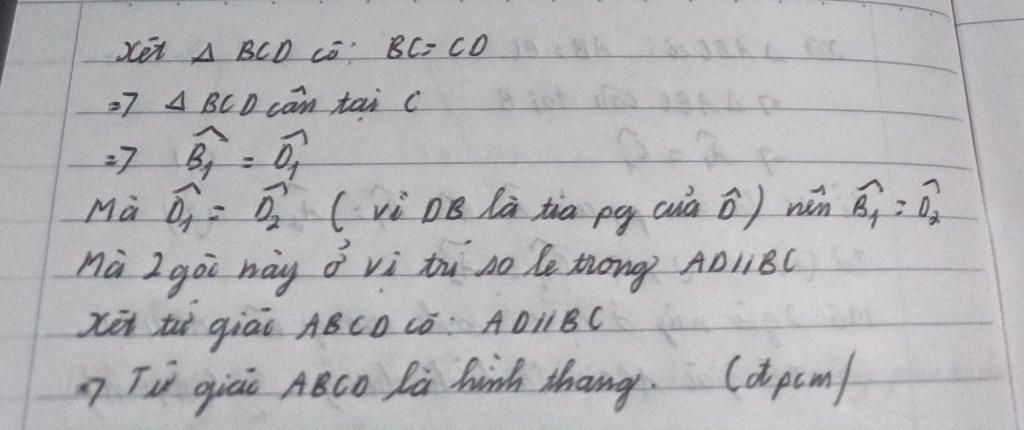 Xét Δ BCD có: BC = CD
=> Δ BCD cân tại C
=> B̂₁ = D̂₁
Mà D̂₁ = D̂₂ ( vì DB là tia pg của D̂ ) nên B̂₁ = D̂₂
Mà 2 góc này ở vị trí so le trong AD//BC
Xét tứ giác ABCD có: AD//BC
=> Tứ giác ABCD là hình thang. (đpcm)